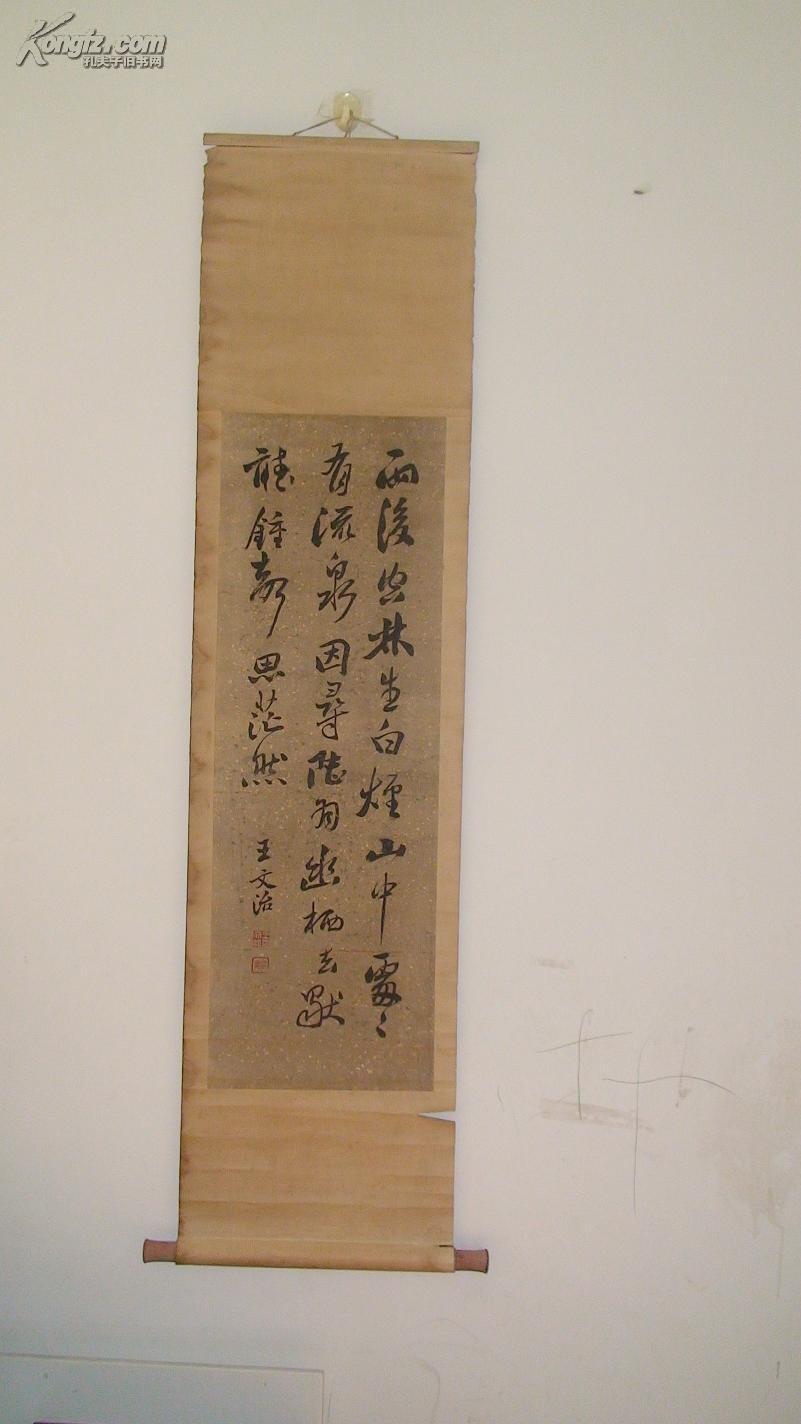 Kongfz.com
孔夫子旧书网
雨後空林生白煙山中處々
有流泉因尋陸羽幽栖去獨
聽鍾聲思茫然
王文治